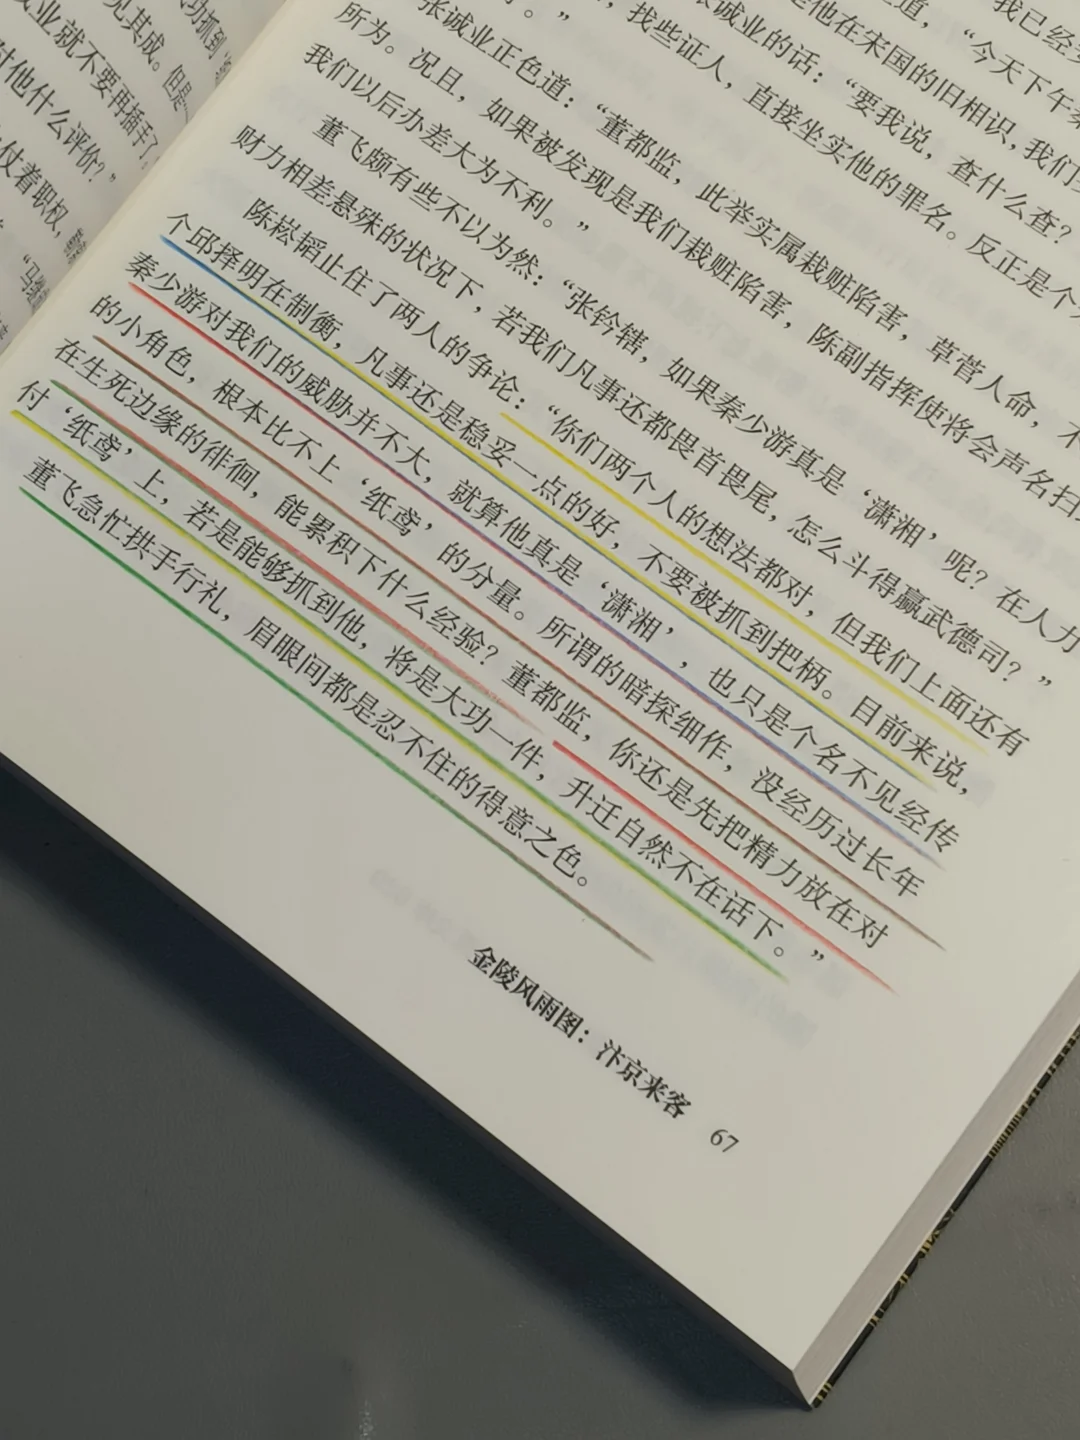 功抓到
见其成。但是
业就不要再插手了，
对他什么评价？”
仗着职权，
我已经
道，“今天下午
是他在宋国的旧相识，我们
张诚业的话：“要我说，查什么查？
，找些证人，直接坐实他的罪名。反正是个
。”
张诚业正色道：“董都监，此举实属栽赃陷害，草菅人命，不
所为。况且，如果被发现是我们栽赃陷害，陈副指挥使将会声名扫
我们以后办差大为不利。”
董飞颇有些不以为然：“张钤辖，如果秦少游真是‘潇湘’呢？在人力
财力相差悬殊的状况下，若我们凡事还都畏首畏尾，怎么斗得赢武德司？”
陈崧韬止住了两人的争论：“你们两个人的想法都对，但我们上面还有
个邱择明在制衡，凡事还是稳妥一点的好，不要被抓到把柄。目前来说，
秦少游对我们的威胁并不大，就算他真是‘潇湘’，也只是个名不见经传
的小角色，根本比不上‘纸鸢’的分量。所谓的暗探细作，没经历过长年
在生死边缘的徘徊，能累积下什么经验？董都监，你还是先把精力放在对
付‘纸鸢’上，若是能够抓到他，将是大功一件，升迁自然不在话下。”
董飞急忙拱手行礼，眉眼间都是忍不住的得意之色。
金陵风雨图：汴京来客 67